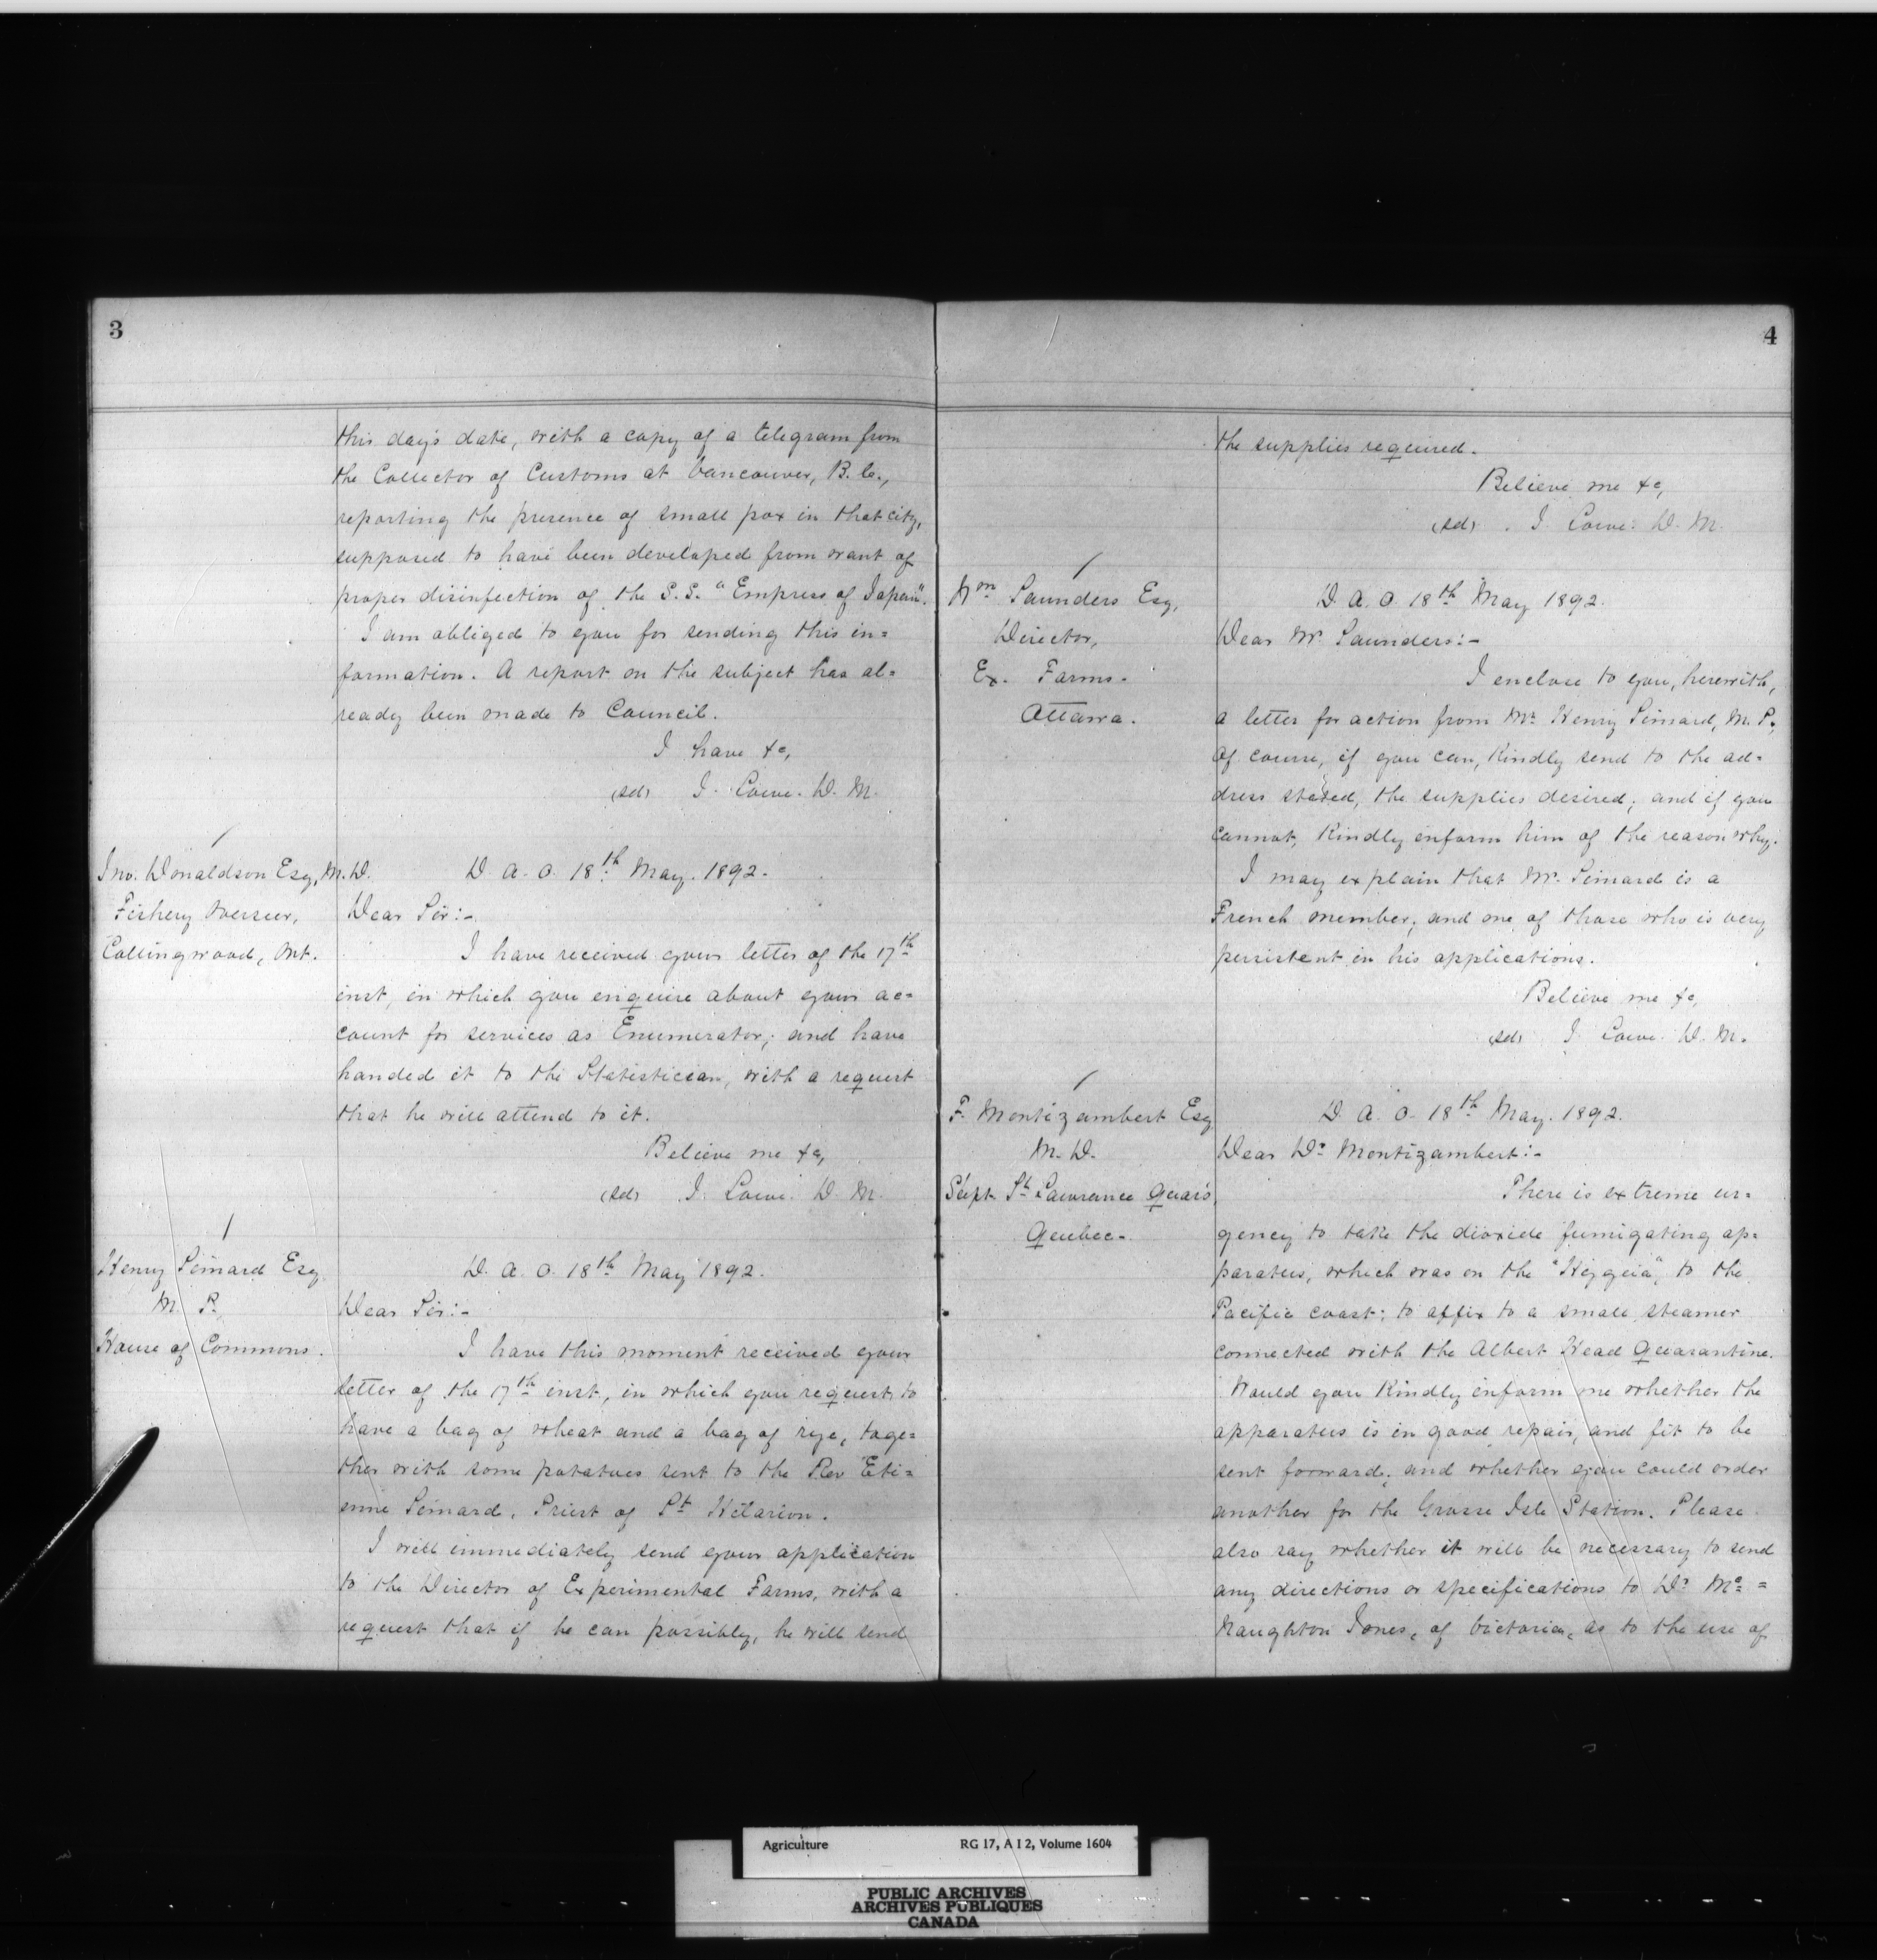 3
this day's date, with a copy of a telegram from
the Collector of Customs at Vancouver, B.C.,
reporting the presence of small pox in that city,
supposed to have been developed from want of
proper disinfection of the S.S. "Empress of Japan".
I am obliged to you for sending this in=
formation. A report on the subject has al=
ready been made to Council.
I have &c,
(sd) J. Lowe. D. M.
Jno. Donaldson Esq, M.D.
Fishery Overseer,
Collingwood, Ont.
D. A. O. 18th May. 1892.
Dear Sir:-
I have received your letter of the 17th
inst, in which you enquire about your ac=
count for services as Enumerator; and have
handed it to the Statistician, with a request
that he will attend to it.
Believe me &c,
(sd) J. Lowe. D. M.
Henry Simard Esq
M. P.
House of Commons.
D. A. O. 18th May 1892.
Dear Sir:-
I have this moment received your
letter of the 17th inst, in which you request, to
have a bag of wheat and a bag of rye, toge=
ther with some potatoes sent to the Rev Eti=
enne Simard, Priest of St Hilarion.
I will immediately send your application
to the Director of Experimental Farms, with a
request that if he can possibly, he will send
4
the supplies required.
Believe me &c,
(sd) J. Lowe. D. M.
Wm Saunders Esq,
Director,
Ex. Farms.
Ottawa.
D. A. O. 18th May 1892.
Dear Mr Saunders:-
I enclose to you, herewith,
a letter for action from Mr Henry Simard, M. P.
Of course, if you can, kindly send to the ad=
dress stated, the supplies desired; and if you
cannot, kindly inform him of the reason why.
I may explain that Mr. Simard is a
French member; and one of those who is very
persistent in his applications.
Believe me &c,
(sd) J. Lowe. D. M.
F. Montizambert Esq
M. D.
Supt. St Lawrance Quar's,
Quebec.
D. A. O. 18th May. 1892.
Dear Dr Montizambert:-
There is extreme ur=
gency to take the dioxide fumigating ap=
paratus, which was on the "Hygeia", to the
Pacific coast; to affix to a small steamer
connected with the Albert Head Quarantine.
Would you kindly inform me whether the
apparatus is in good repair, and fit to be
sent forward; and whether you could order
another for the Grosse Isle Station. Please
also say whether it will be necessary to send
any directions or specifications to Dr Mc=
Naughton Jones, of Victoria, as to the use of
Agriculture RG 17, A I 2, Volume 1604
PUBLIC ARCHIVES
ARCHIVES PUBLIQUES
CANADA